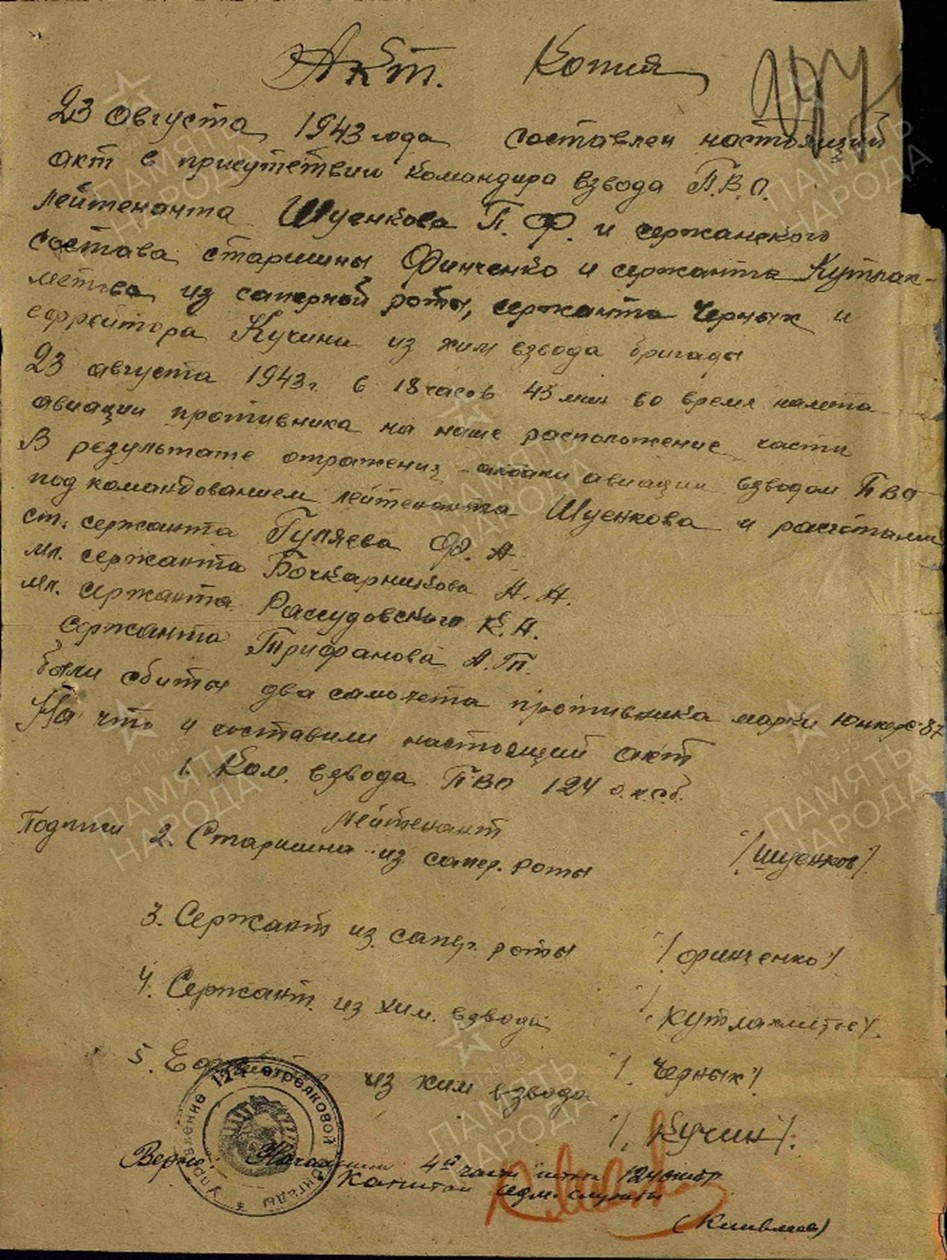 Акт. Копия
23 августа 1943 года составлен настоящий
акт в присутствии командира взвода П.В.О.
лейтенанта Шуенкова П. Ф. и сержанского
состава старшины Финченко и сержанта Кутлах-
метова из саперной роты, сержанта Черных и
ефрейтора Кучина из хим взвода бригады
23 августа 1943 г. в 18 часов 45 мин во время налета
авиации противника на наше расположение части
В результате отражения атаки авиации взводом ПВО
под командованием лейтенанта Шуенкова и расчетами
ст. сержанта Гуляева Ф. А.
мл. сержанта Бочкарникова А. Н.
мл. сержанта Рассудовского К. А.
сержанта Трифанова А. П.
были сбиты два самолета противника марки Юнкерс-87
На что и составили настоящий акт
1. Ком. взвода ПВО 124 о.к.с.б.
Лейтенант /Шуенков/.
Подписи 2. Старшина из сапер. роты
/Финченко/.
3. Сержант из сапер. роты
/Кутлахметов/.
4. Сержант из хим. взвода
/Черных/
5. Ефрейтор из хим взвода
/Кучин/.
Управление 124 стрелковой бригады
Верно: Начальник 4й части
капитан адм. службы
ПАМЯТЬ НАРОДА
1941-1945